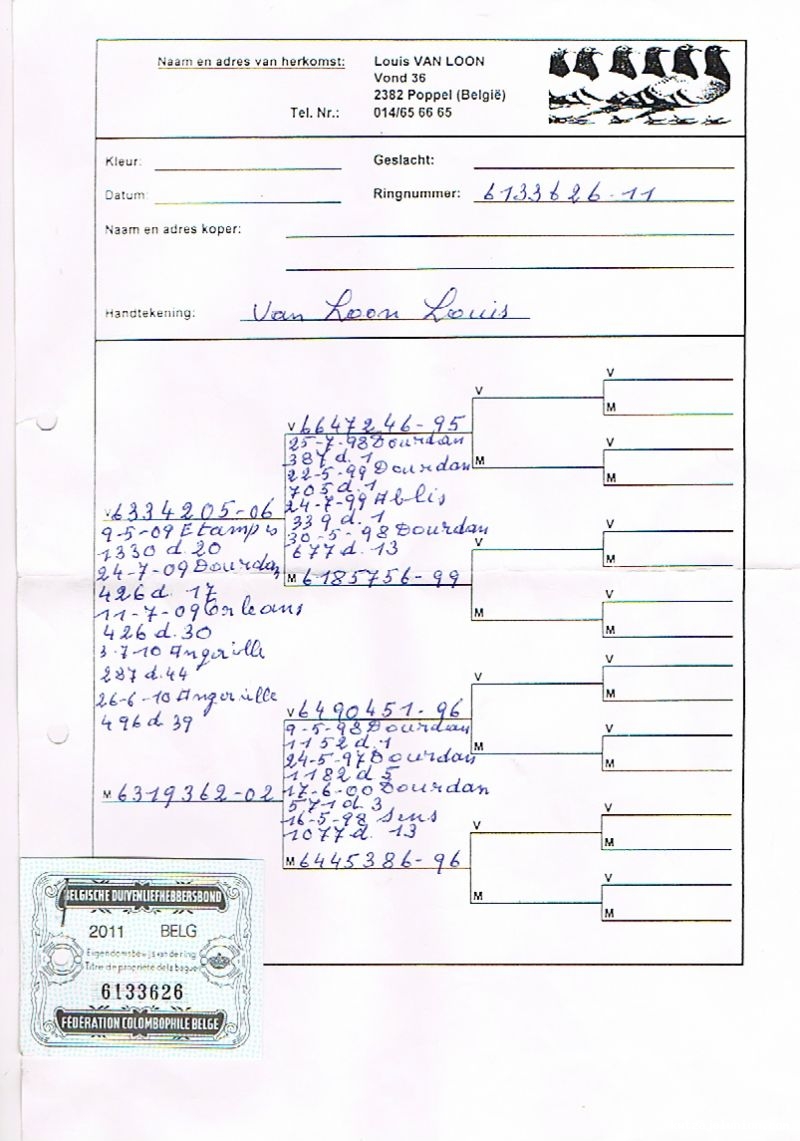 Naam en adres van herkomst: Louis VAN LOON
Vond 36
2382 Poppel (België)
Tel. Nr.: 014/65 66 65
Kleur: Geslacht:
Datum: Ringnummer: 6133626-11
Naam en adres koper:
Handtekening: Van Loon Louis
V 6334205-06
9-5-09 Etampis
1330 d. 20
24-7-09 Dourdan
426 d. 17
11-7-09 Orleans
426 d. 30
3-7-10 Angerville
287 d. 44
26-6-10 Angerville
496 d 39
M 6319362-02
V 6647246-95
25-7-98 Dourdan
387 d. 1
22-5-99 Dourdan
705 d. 1
24-7-99 Ablis
339 d. 1
30-5-98 Dourdan
677 d. 13
M 6185756-99
V 6490451-96
9-5-98 Dourdan
1152 d. 1
24-5-97 Dourdan
1182 d 5
17-6-00 Dourdan
571 d. 3
16-5-98 Sens
1077 d. 13
M 6445386-96
V
M
V
M
V
M
V
M
V
M
V
M
V
M
V
M
V
M
V
M
V
M
V
M
BELGISCHE DUIVENLIEFHEBBERSBOND
2011 BELG
Eigendomsbewijs van de ring
Titre de propriété de la bague
6133626
FÉDÉRATION COLOMBOPHILE BELGE